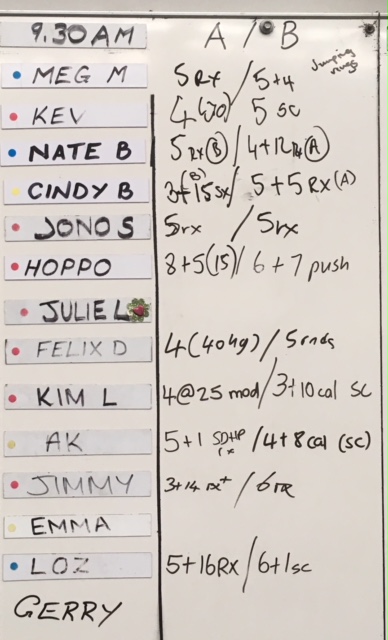 9.30AM A / B
Jumping rings
MEG M 5 Rx / 5+4
KEV 4 (40) / 5 sc
NATE B 5 Rx (B) / 4+12 Rx (A)
CINDY B 3+15 sx (B) / 5+5 Rx (A)
JONO S 5rx / 5rx
HOPPO 8+5(15) / 6+7 push
JULIE L
FELIX D 4(40kg) / 5rnds
KIM L 4@25 mod / 3+10 cal SC
AK 5+1 SDHP rx / 4+8 cal (sc)
JIMMY 3+14 rx+ / 6 rx
EMMA
LOZ 5+16Rx / 6+1sc
GERRY